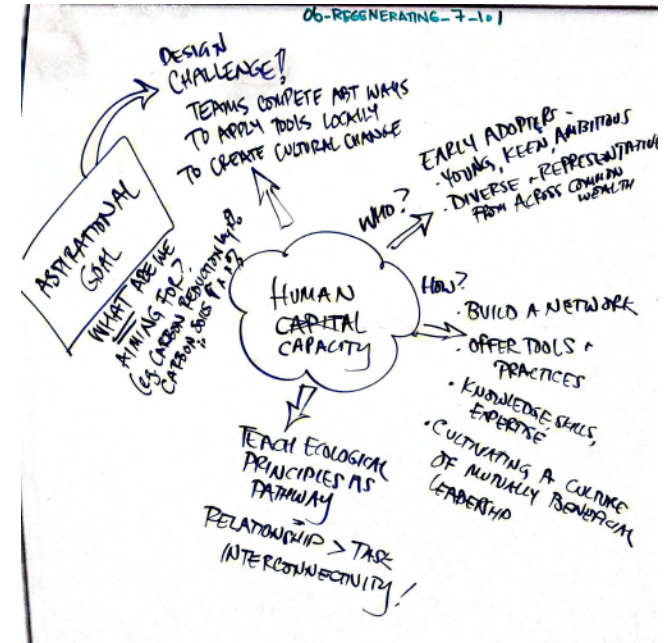 06-REGENERATING-7-1.1
DESIGN
CHALLENGE!
TEAMS COMPETE ABT WAYS
TO APPLY TOOLS LOCALLY
TO CREATE CULTURAL CHANGE
ASPIRATIONAL
GOAL
WHAT ARE WE
AIMING FOR?
(eg. CARBON REDUCTION by
CARBON SOILS
WHO?
EARLY ADOPTERS -
· YOUNG, KEEN, AMBITIOUS
· DIVERSE + REPRESENTATIVE
FROM ACROSS COMMON
WEALTH
HUMAN
CAPITAL
CAPACITY
HOW?
· BUILD A NETWORK
· OFFER TOOLS +
PRACTICES
· KNOWLEDGE, SKILLS,
EXPERTISE
· CULTIVATING A CULTURE
OF MUTUALLY BENEFICIAL
LEADERSHIP
TEACH ECOLOGICAL
PRINCIPLES AS
PATHWAY
RELATIONSHIP > TASK
INTERCONNECTIVITY!